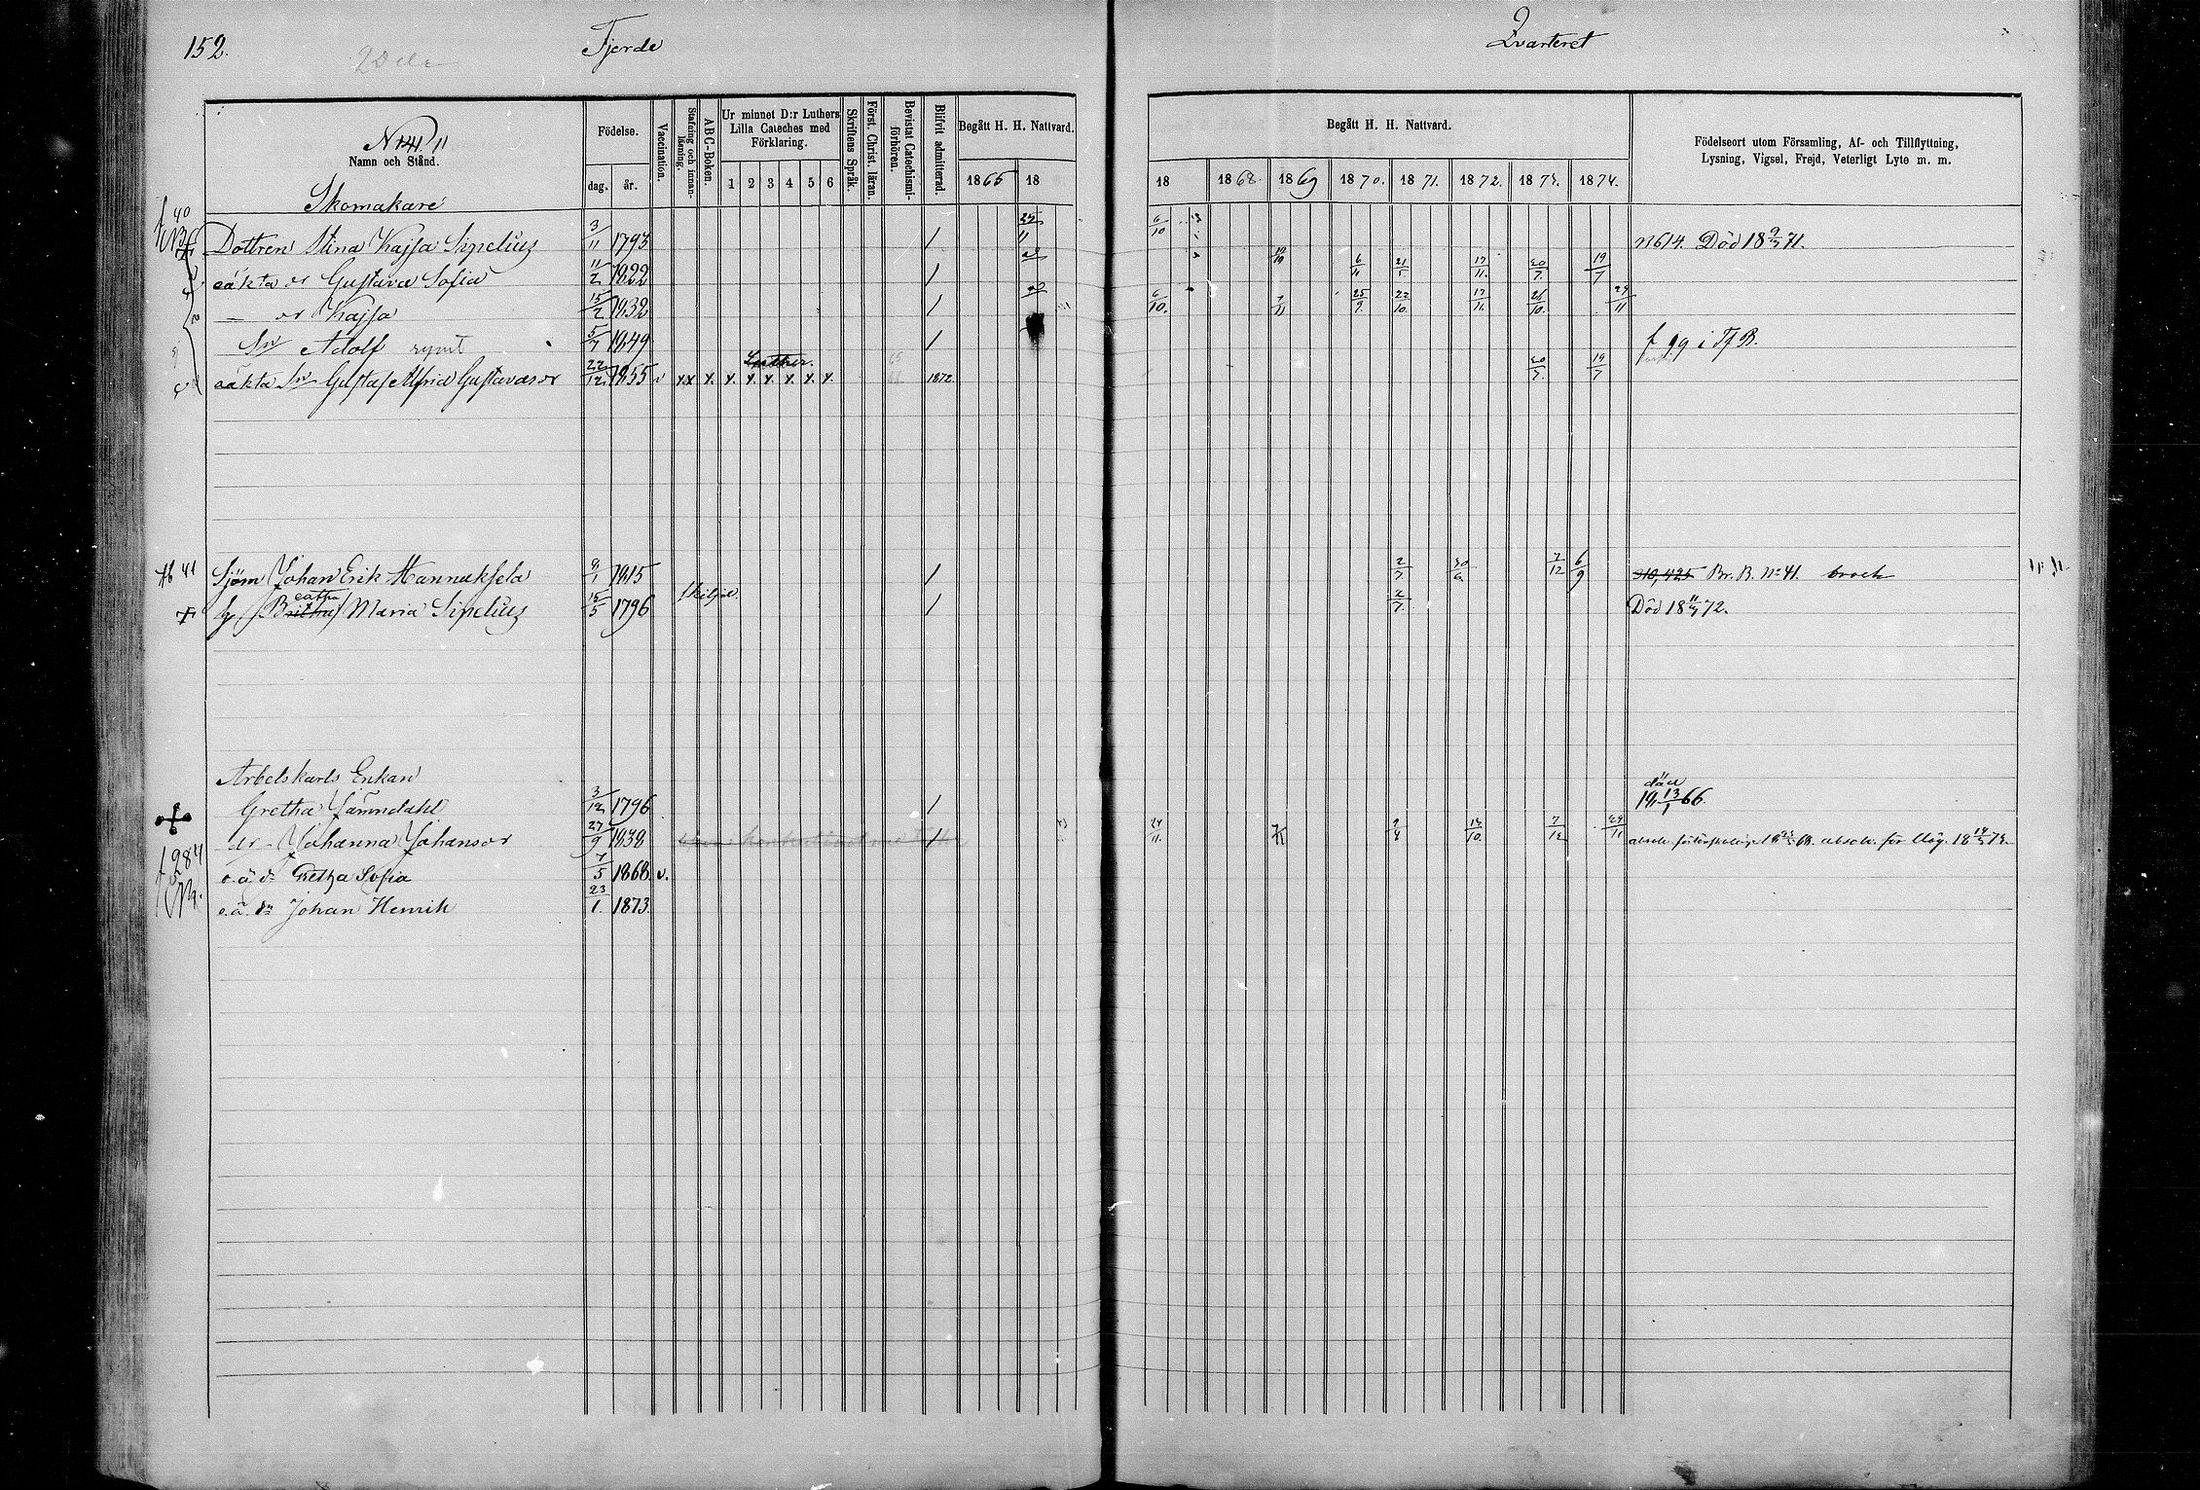 152.
Fjerde
Qvarteret
N 141 11
Namn och Stånd.
Födelse.
dag. år.
Vaccination.
Stafning och innan-läsning.
A B C-Boken.
Ur minnet D:r Luthers Lilla Cateches med Förklaring.
1 2 3 4 5 6
Skriftens Språk.
Först. Christ. läran.
Bevistat Catechismi-förhören.
Blifvit admitterad.
Begått H. H. Nattvard.
1865 18
Begått H. H. Nattvard.
18 1868. 1869 1870. 1871. 1872. 1873. 1874.
Födelseort utom Församling, Af- och Tillflyttning, Lysning, Vigsel, Frejd, Veterligt Lyte m. m.
Skomakare
40
Dottren Stina Kajsa Sipelius 3/11 1793 / 6/10 n614. Död 18 9/7 71.
oäkta dr Gustava Sofia 11/2 1822 / 6/11 21/5 17/11. 20/7. 19/7
— dr Kajsa 15/2 1832 / 6/10. 7/11 25/9. 22/10. 17/11. 26/10. 29/11
Sn Adolf rymt 5/7 1849 / f 99 i Tf B.
oäkta Sn Gustaf Alfrid Gustavason 22/12 1855 v x x x. x. x. x. x. x. x. 1872 20/7. 19/7
Luther.
41 Sjöm Johan Erik Mannuksela 9/1 1815 / 2/7. 30/6. 7/12 6/9 210,425 Br. B. No 41. brock
h, Britha Maria Sipelius 15/5 1796 / 2/7. Död 18 11/4 72.
catha
skiljd.
Arbetskarls Enkan
Gretha Jämndahl 3/12 1796 / död 18 13/1 66.
dr. Johanna Johansdr 27/9 1838 / 24/11. 9/4 13/10. 7/12 29/11
f 284
o.ä dr Gretha Sofia 7/5 1868 v.
o.ä. sn Johan Henrik 23/1. 1873